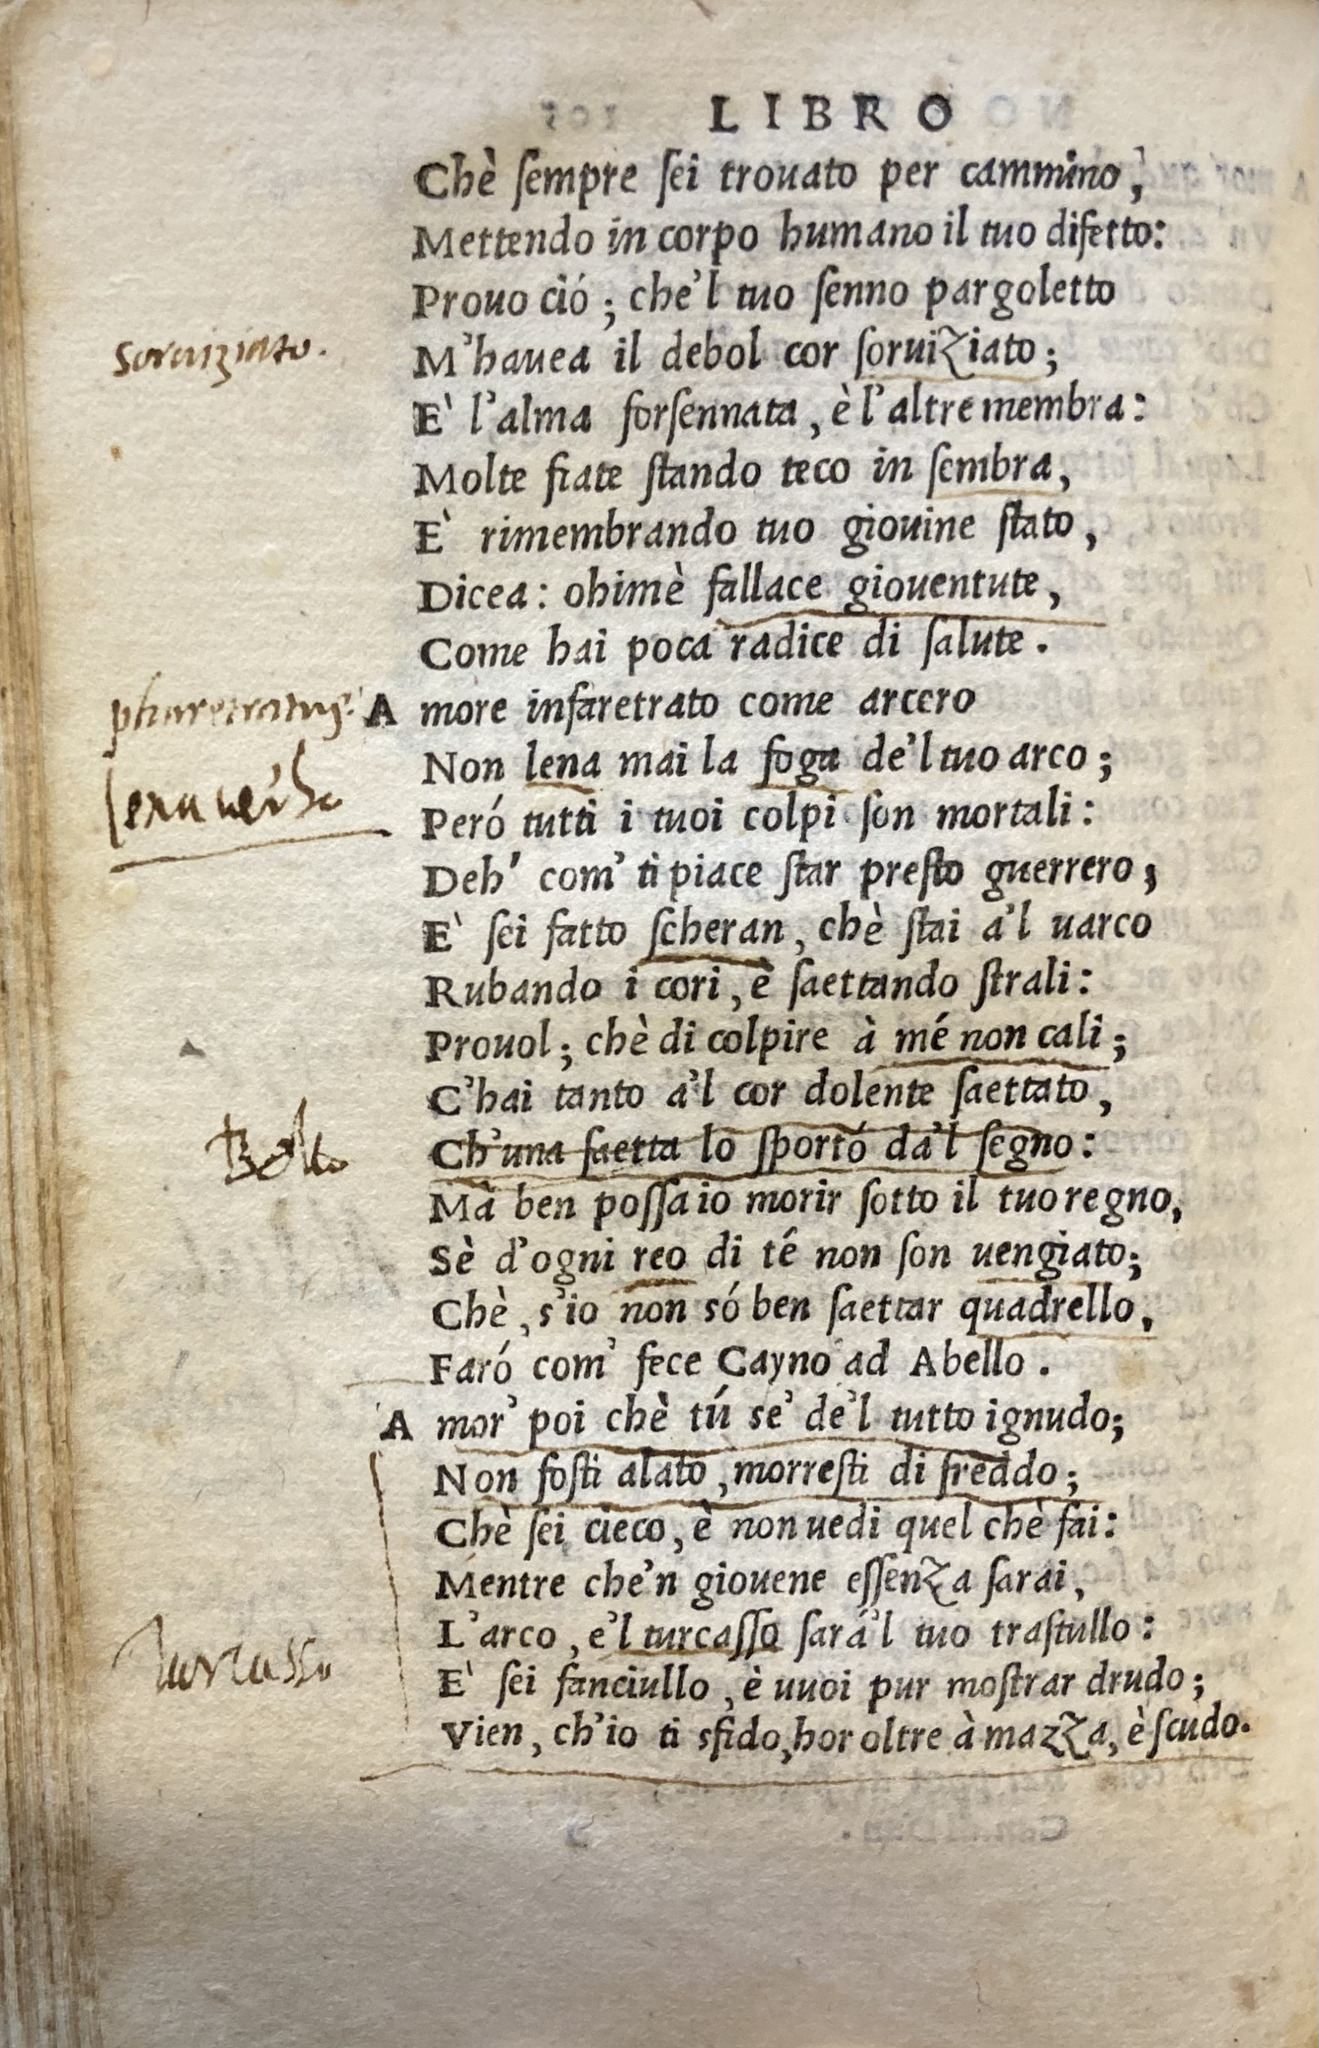 LIBRO
Chè ſempre ſei trouato per cammino,
Mettendo in corpo humano il tuo difetto:
Prouo ció; che'l tuo ſenno pargoletto
soruiziato.
M'hauea il debol cor ſoruiziato;
E' l'alma forſennata, è l'altre membra:
Molte fiate ſtando teco in ſembra,
E' rimembrando tuo giouine ſtato,
Dicea: ohimè fallace giouentute,
Come hai poca radice di ſalute.
pharetratus.
Amore infaretrato come arcero
Non lena mai la foga de'l tuo arco;
lena uerbo
Peró tutti i tuoi colpi ſon mortali:
Deh' com' ti piace ſtar preſto guerrero;
E' ſei fatto ſcheran, chè ſtai a'l uarco
Rubando i cori, è ſaettando ſtrali:
Prouol; chè di colpire à mé non cali;
C'hai tanto a'l cor dolente ſaettato,
Bello
Ch'una ſaetta lo ſportó da'l ſegno:
Mà ben poſſa io morir ſotto il tuo regno,
Sè d'ogni reo di té non ſon uengiato;
Chè, s'io non só ben ſaettar quadrello,
Faró com' fece Cayno ad Abello.
Amor' poi chè tú se' de'l tutto ignudo;
Non foſti alato, morreſti di freddo;
Chè ſei cieco, è non uedi quel chè fai:
Mentre che'n giouene eſſenza ſarai,
L'arco, e'l turcaſſo ſará'l tuo traſtullo:
turcasso
E' ſei fanciullo, è uuoi pur moſtrar drudo;
Vien, ch'io ti sfido, hor oltre à mazza, è ſcudo.